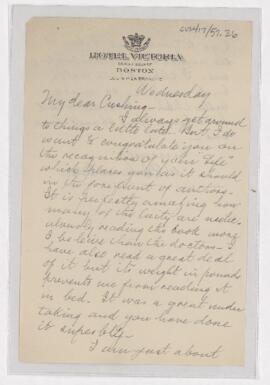 HOTEL VICTORIA
BOSTON
Wednesday
My dear Cushing -
I always get around
to things a little late. But, I do
want to congratulate you on
the recognition of your "Life"
which places you as it should
in the foremost of authors -
It is perfectly amazing how
many of the laity are
reading the book more
I believe than the doctors - I
have also read a great deal
of it but its weight in pounds
prevents me from reading it
in bed. It was a great under
taking and you have done
it superbly -
I am just about